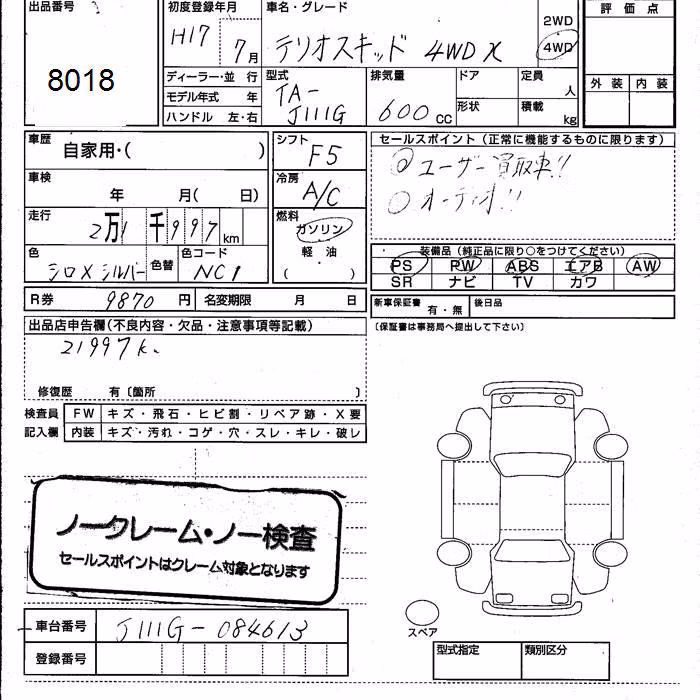 出品番号
8018
初度登録年月
H17 7月
車名・グレード
テリオスキッド 4WD X
2WD
4WD
評価点
外装 内装
ディーラー・並行
モデル年式 年
ハンドル 左・右
型式
TA-
J111G
排気量
600cc
ドア
形状
定員 人
積載 kg
車歴
自家用・( )
車検
年 月(日)
走行
2万1千997km
色
シロ×シルバー
色替
色コード
NC1
シフト
F5
冷房
A/C
燃料
ガソリン
軽油
( )
R券 9870円 名変期限 月 日
セールスポイント(正常に機能するものに限ります)
◎ユーザー買取車!!
○オーディオ!!
装備品(純正品に限り○をつけてください)
PS PW ABS エアB AW
SR ナビ TV カワ
新車保証書 有・無 後日品
〔保証書は事務局へ提出して下さい〕
出品店申告欄(不良内容・欠品・注意事項等記載)
21997k.
修復歴 有〔箇所 〕
検査員 FW キズ・飛石・ヒビ割・リペア跡・X要
記入欄 内装 キズ・汚れ・コゲ・穴・スレ・キレ・破レ
ノークレーム・ノー検査
セールスポイントはクレーム対象となります
車台番号 J111G-084613
登録番号
スペア
型式指定 類別区分